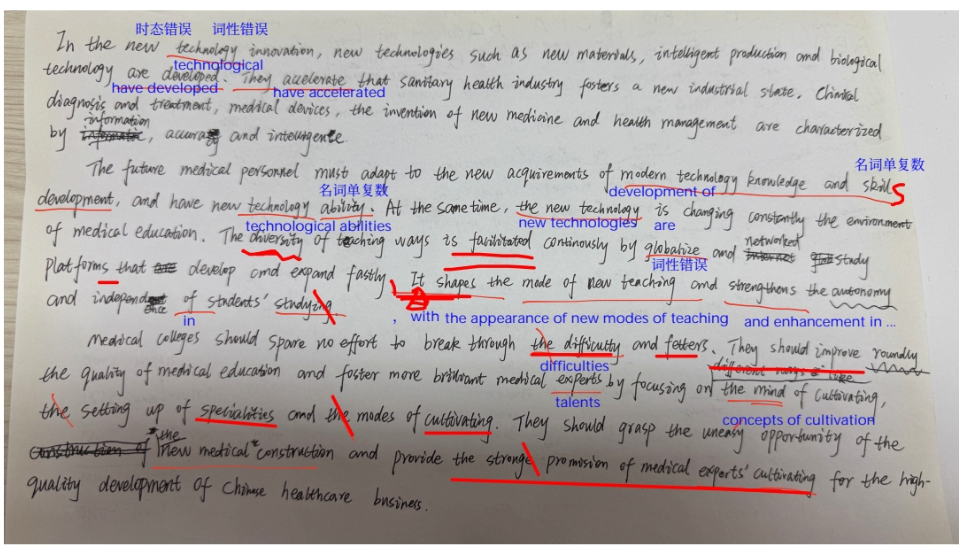 时态错误 词性错误
In the new technology innovation, new technologies such as new materials, intelligent production and biological
technological
technology are developed. They accelerate that sanitary health industry fosters a new industrial state. Clinical
have developed have accelerated
diagnosis and treatment, medical devices, the invention of new medicine and health management are characterized
information
by informatic, accuracy and intelligence.
The future medical personnel must adapt to the new acquirements of modern technology knowledge and skill S
名词单复数
名词单复数 development of
development, and have new technology ability. At the same time, the new technology is changing constantly the environment
technological abilities new technologies are
of medical education. The diversity of teaching ways is facilitated continously by globalize and networked study
词性错误
platforms that develop and expand fastly. It shapes the mode of new teaching and strengthens the autonomy
and independence of students' studying
in , with the appearance of new modes of teaching and enhancement in ...
Medical colleges should spare no effort to break through the difficulty and fetters. They should improve roundly
difficulties
the quality of medical education and foster more brilliant medical experts by focusing on the mind of cultivating,
talents
the setting up of specialities and the modes of cultivating. They should grasp the uneasy opportunity of the
concepts of cultivation
the
construction of new medical construction and provide the stronge promision of medical experts' cultivating for the high-
quality development of Chinese healthcare business.